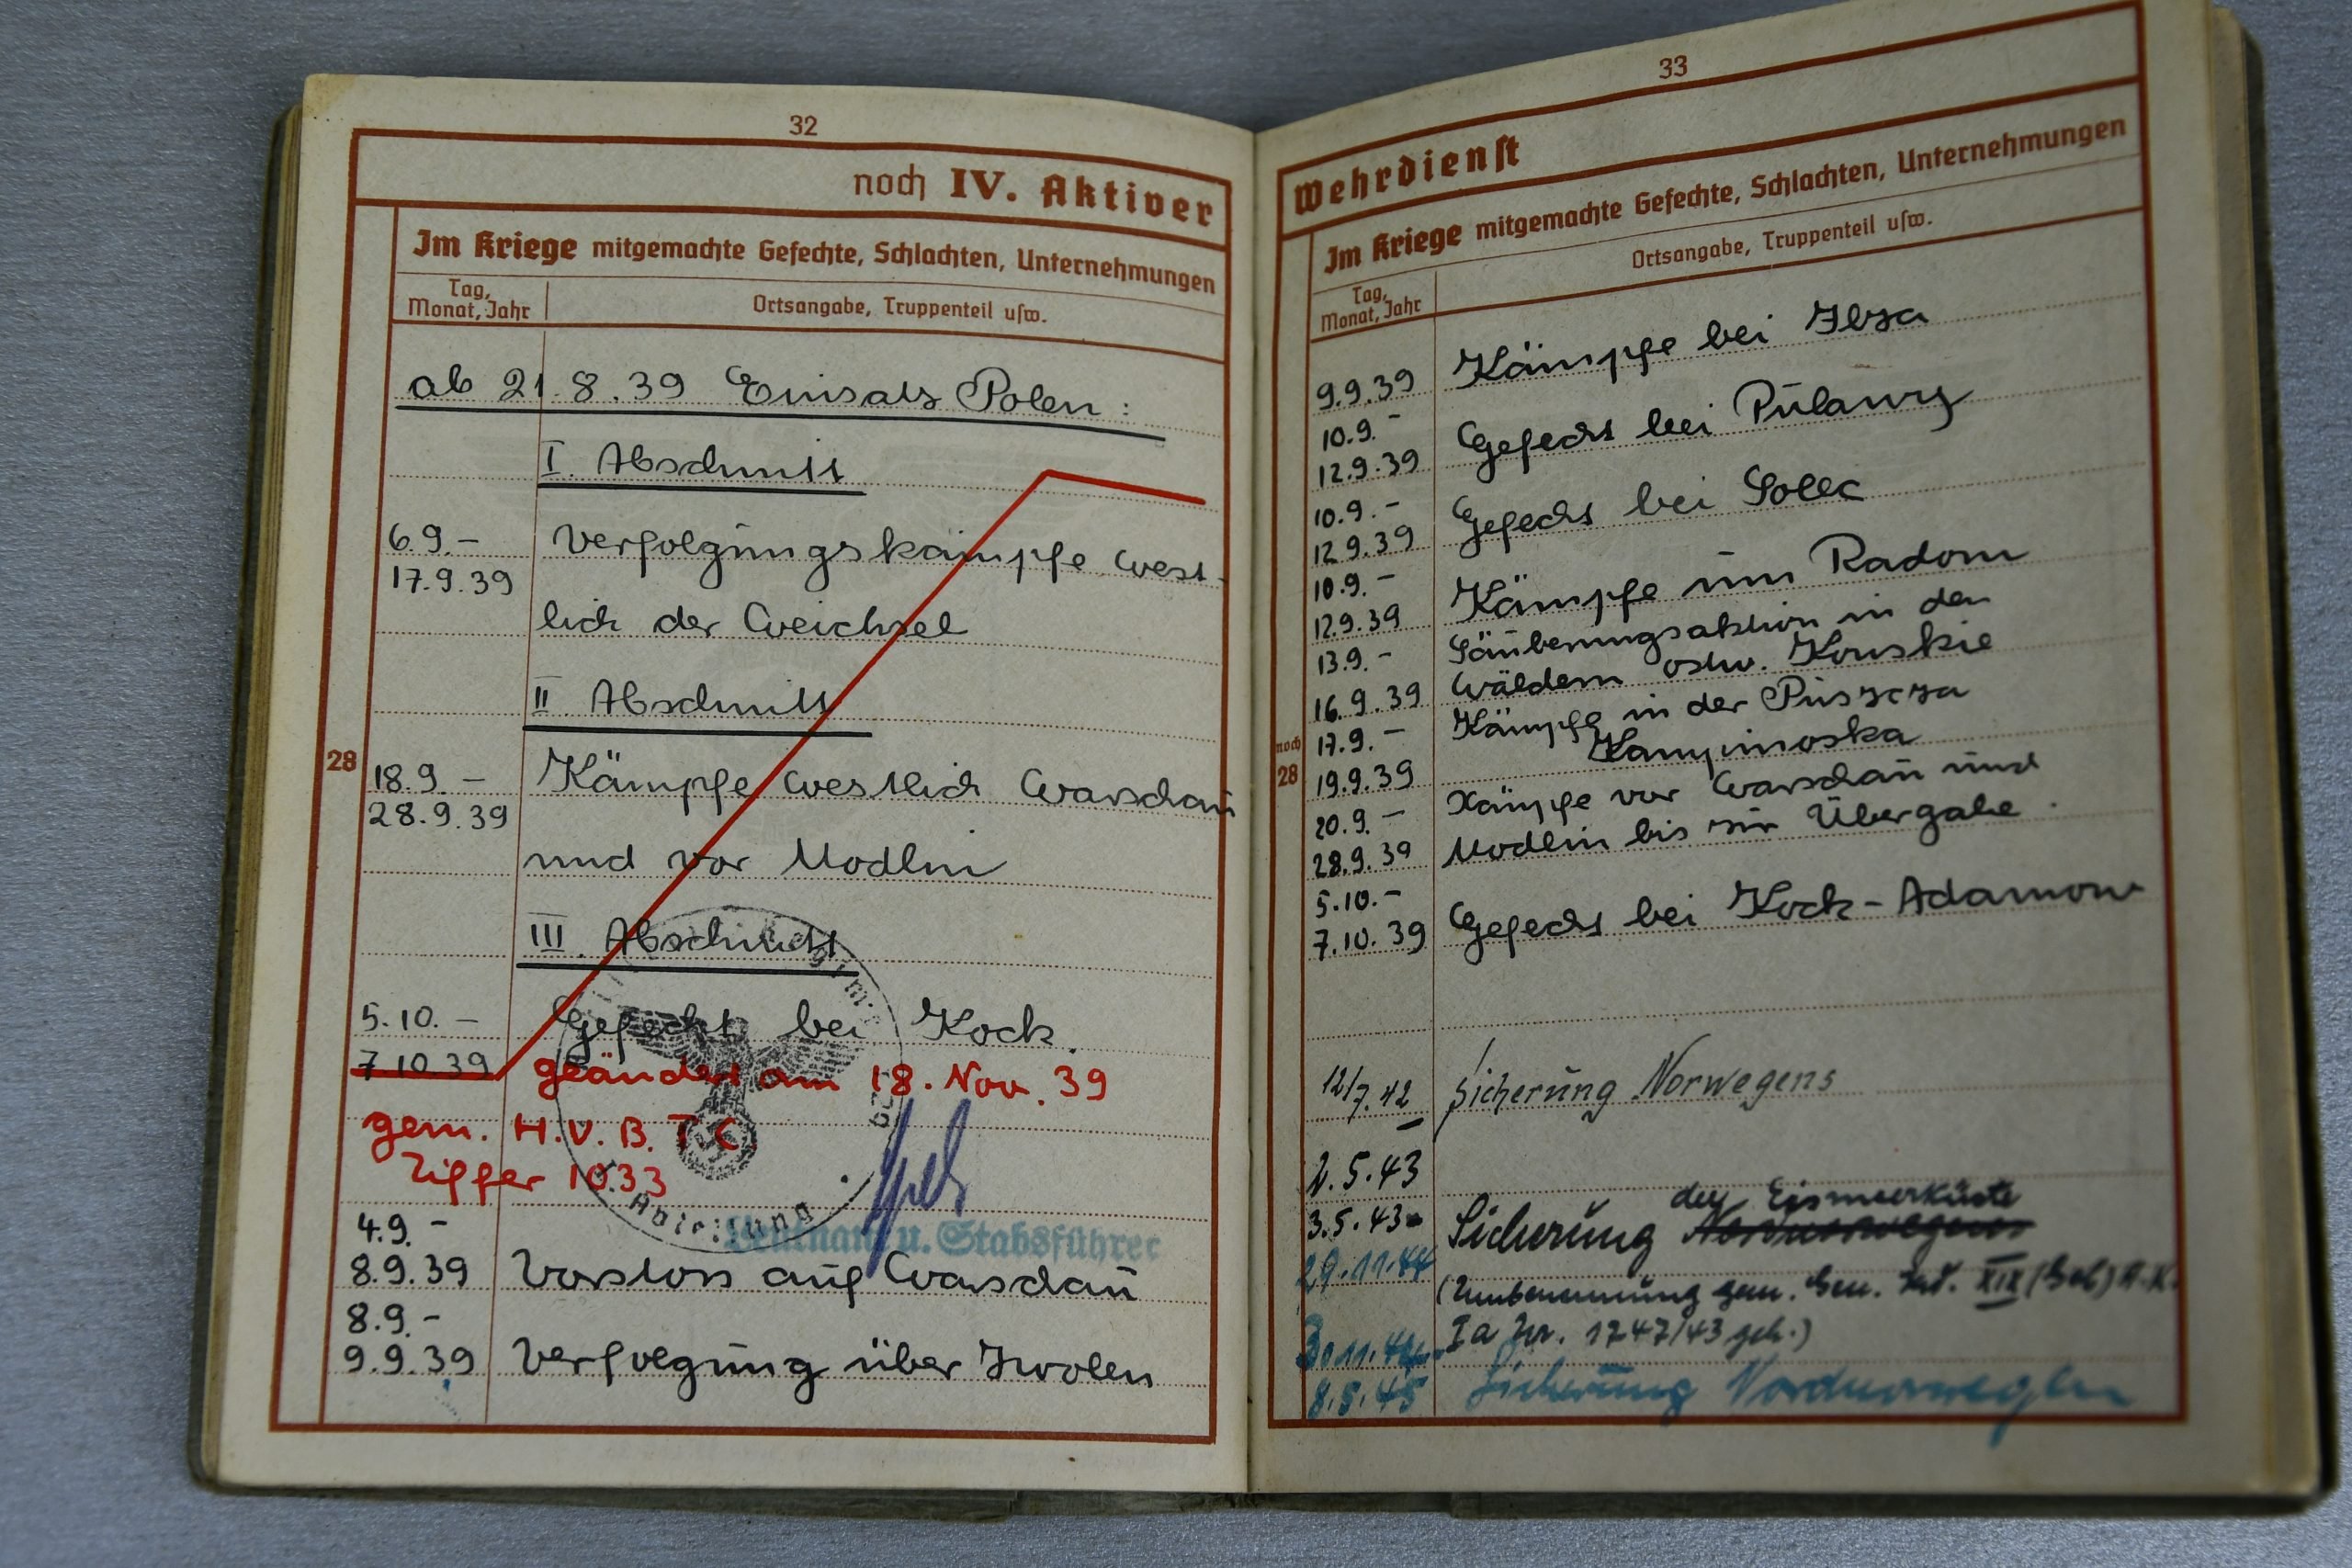 32
noch IV. Aktiver
Im Kriege mitgemachte Gefechte, Schlachten, Unternehmungen
Tag, Monat, Jahr
Ortsangabe, Truppenteil usw.
ab 21.8.39 Einsatz Polen:
I. Abschnitt
6.9.– Verfolgungskämpfe west-
17.9.39
lich der Weichsel
II. Abschnitt
28
18.9.– Kämpfe westlich Warschau
28.9.39
und vor Modlin
III. Abschnitt
5.10.– Gefecht bei Kock.
7.10.39 geändert am 18. Nov. 39
gem. H.V.B. T C
Ziffer 1033
Abteilung
Leutnant u. Stabsführer
4.9.–
8.9.39 Vorstoss auf Warschau
8.9.–
9.9.39 Verfolgung über Zwolen
33
Wehrdienst
Im Kriege mitgemachte Gefechte, Schlachten, Unternehmungen
Tag, Monat, Jahr
Ortsangabe, Truppenteil usw.
9.9.39 Kämpfe bei Ilza
10.9.–
12.9.39 Gefecht bei Pulawy
10.9.–
12.9.39 Gefecht bei Solec
10.9.–
12.9.39 Kämpfe um Radom
13.9.– Säuberungsaktion in den
16.9.39 Wäldern ostw. Konskie
noch 28
17.9.– Kämpfe in der Puszcza
19.9.39 Kampinoska
20.9.– Kämpfe vor Warschau und
28.9.39 Modlin bis zur Übergabe.
5.10.–
7.10.39 Gefecht bei Kock-Adamow
12/7.42 Sicherung Norwegens
–
2.5.43
der Eismeerküste
3.5.43- Sicherung
29.11.44 (Umbenennung gem. Gen. Kdo. XIX (Geb) A.K.
30.11.44- Ia Nr. 1747/43 geh.)
8.5.45 Sicherung Nordnorwegen